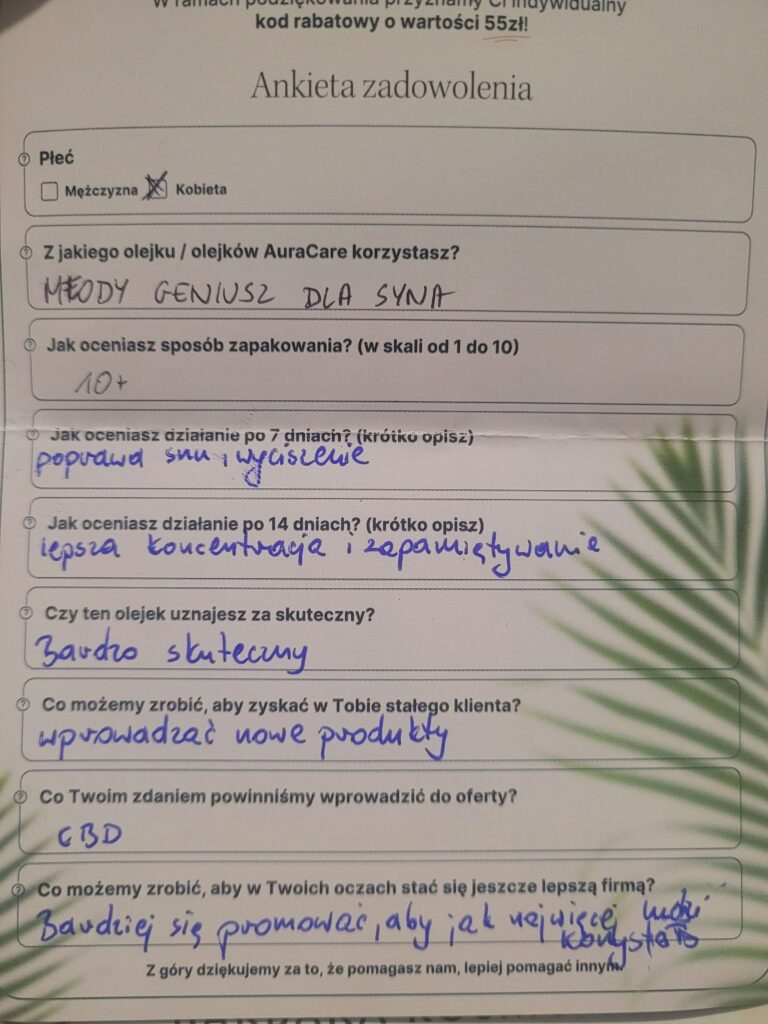 W ramach podziękowania przyznamy Ci indywidualny
kod rabatowy o wartości 55zł!
Ankieta zadowolenia
Płeć
Mężczyzna Kobieta
Z jakiego olejku / olejków AuraCare korzystasz?
MŁODY GENIUSZ DLA SYNA
Jak oceniasz sposób zapakowania? (w skali od 1 do 10)
10+
Jak oceniasz działanie po 7 dniach? (krótko opisz)
poprawa snu, wyciszenie
Jak oceniasz działanie po 14 dniach? (krótko opisz)
lepsza koncentracja i zapamiętywanie
Czy ten olejek uznajesz za skuteczny?
Bardzo skuteczny
Co możemy zrobić, aby zyskać w Tobie stałego klienta?
wprowadzać nowe produkty
Co Twoim zdaniem powinniśmy wprowadzić do oferty?
CBD
Co możemy zrobić, aby w Twoich oczach stać się jeszcze lepszą firmą?
Bardziej się promować, aby jak najwięcej ludzi
korzystało
Z góry dziękujemy za to, że pomagasz nam, lepiej pomagać innym.